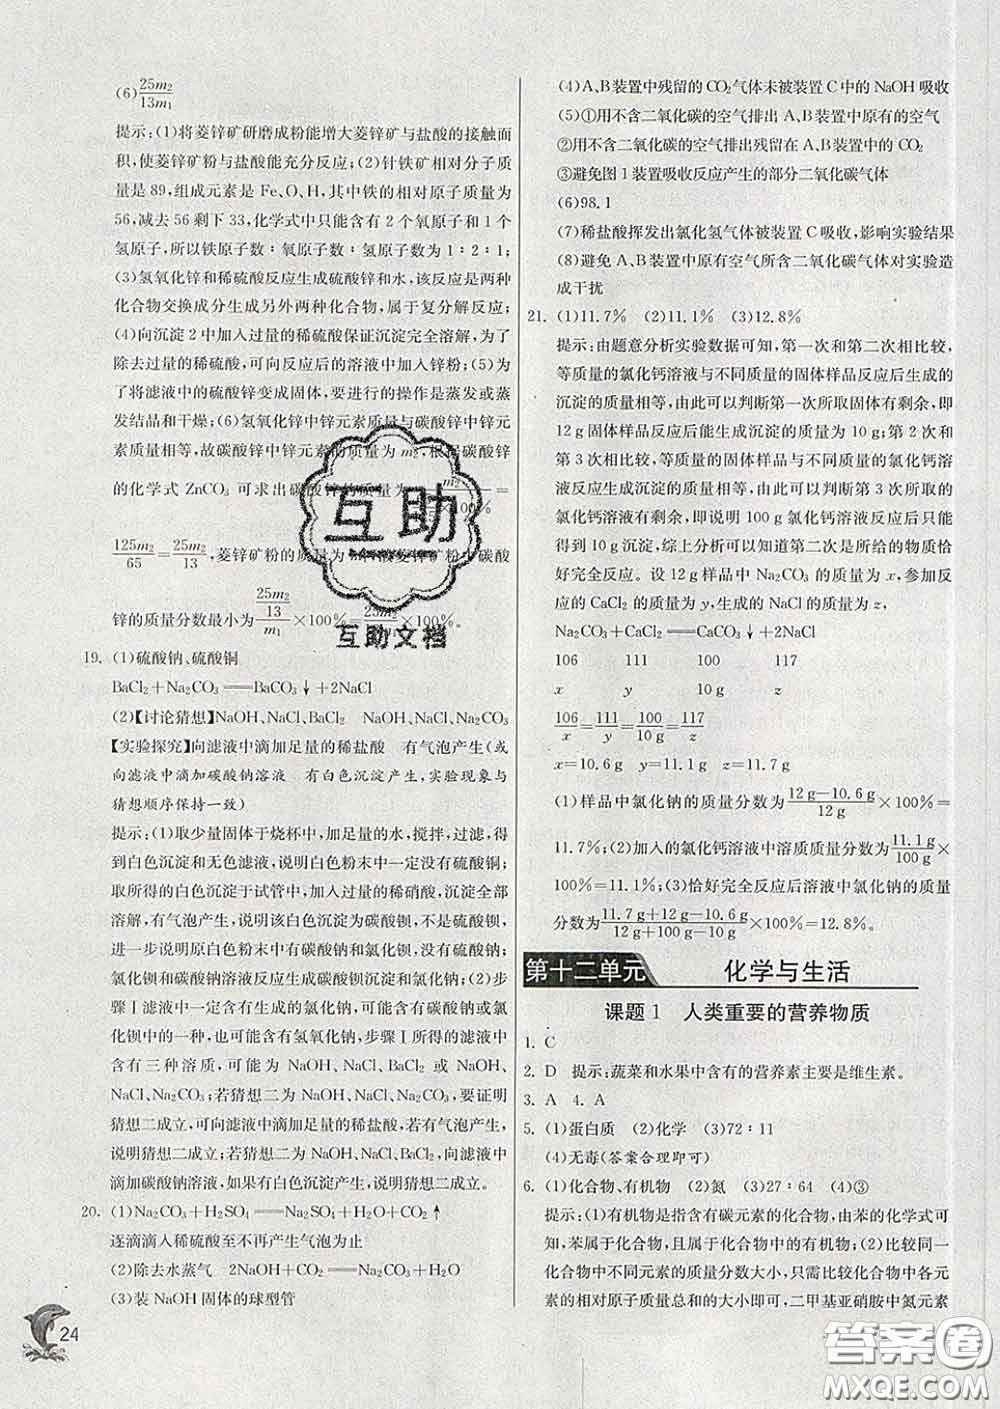 (6)25m₂/13m₁
提示:(1)将菱锌矿研磨成粉能增大菱锌矿与盐酸的接触面
积,使菱锌矿粉与盐酸能充分反应;(2)针铁矿相对分子质
量是 89,组成元素是 Fe、O、H,其中铁的相对原子质量为
56,减去 56 剩下 33,化学式中只能含有 2 个氧原子和 1 个
氢原子,所以铁原子数∶氧原子数∶氢原子数为 1∶2∶1;
(3)氢氧化锌和稀硫酸反应生成硫酸锌和水,该反应是两种
化合物交换成分生成另外两种化合物,属于复分解反应;
(4)向沉淀 2 中加入过量的稀硫酸保证沉淀完全溶解,为了
除去过量的稀硫酸,可向反应后的溶液中加入锌粉;(5)为
了将滤液中的硫酸锌变成固体,要进行的操作是蒸发或蒸
发结晶和干燥;(6)氢氧化锌中锌元素质量与碳酸锌中锌元
素质量相等,故碳酸锌中锌元素的质量为 m₂,根据碳酸锌
的化学式 ZnCO₃ 可求出碳酸锌的质量为
125m₂/65=25m₂/13,菱锌矿粉的质量为 菱锌矿粉中碳酸
锌的质量分数最小为 (25m₂/13)/m₁×100%=25m₂/ ×100%。
19. (1)硫酸钠、硫酸铜
BaCl₂+Na₂CO₃══BaCO₃↓+2NaCl
(2)【讨论猜想】NaOH、NaCl、BaCl₂ NaOH、NaCl、Na₂CO₃
【实验探究】向滤液中滴加足量的稀盐酸 有气泡产生(或
向滤液中滴加碳酸钠溶液 有白色沉淀产生,实验现象与
猜想顺序保持一致)
提示:(1)取少量固体于烧杯中,加足量的水,搅拌,过滤,得
到白色沉淀和无色滤液,说明白色粉末中一定没有硫酸铜;
取所得的白色沉淀于试管中,加入过量的稀硝酸,沉淀全部
溶解,有气泡产生,说明该白色沉淀为碳酸钡,不是硫酸钡,
进一步说明原白色粉末中有碳酸钠和氯化钡,没有硫酸钠;
氯化钡和碳酸钠溶液反应生成碳酸钡沉淀和氯化钠;(2)步
骤Ⅰ滤液中一定含有生成的氯化钠,可能含有碳酸钠或氯
化钡中的一种,也可能有氢氧化钠,步骤Ⅰ所得的滤液中若
含有三种溶质,可能为 NaOH、NaCl、BaCl₂ 或 NaOH、
NaCl、Na₂CO₃;若猜想二为 NaOH、NaCl、Na₂CO₃,要证明猜
想二成立,可向滤液中滴加足量的稀盐酸,若有气泡产生,
说明猜想二成立;若猜想二为 NaOH、NaCl、BaCl₂,向滤液中
滴加碳酸钠溶液,如果有白色沉淀产生,说明猜想二成立。
20. (1)Na₂CO₃+H₂SO₄══Na₂SO₄+H₂O+CO₂↑
逐滴滴入稀硫酸至不再产生气泡为止
(2)除去水蒸气 2NaOH+CO₂══Na₂CO₃+H₂O
(3)装 NaOH 固体的球型管
24
(4)A、B装置中残留的 CO₂气体未被装置 C中的 NaOH 吸收
(5)①用不含二氧化碳的空气排出 A、B装置中原有的空气
②用不含二氧化碳的空气排出残留在 A、B装置中的 CO₂
③避免图 1 装置吸收反应产生的部分二氧化碳气体
(6)98.1
(7)稀盐酸挥发出氯化氢气体被装置 C吸收,影响实验结果
(8)避免 A、B装置中原有空气所含二氧化碳气体对实验造
成干扰
21. (1)11.7% (2)11.1% (3)12.8%
提示:由题意分析实验数据可知,第一次和第二次相比较,
等质量的氯化钙溶液与不同质量的固体样品反应后生成的
沉淀的质量相等,由此可以判断第一次所取固体有剩余,即
12 g 固体样品反应后能生成沉淀的质量为 10 g;第 2 次和
第 3 次相比较,等质量的固体样品与不同质量的氯化钙溶
液反应生成沉淀的质量相等,可以判断第 3 次所取的
氯化钙溶液有剩余,即说明 100 g 氯化钙溶液反应后只能
得到 10 g 沉淀,综上分析可以知道第二次是所给的物质恰
好完全反应。设 12 g 样品中 Na₂CO₃ 的质量为 x,参加反
应的 CaCl₂ 的质量为 y,生成的 NaCl 的质量为 z,
Na₂CO₃+CaCl₂══CaCO₃↓+2NaCl
106 111 100 117
x y 10 g z
106/x=111/y=100/10 g=117/z
x=10.6 g y=11.1 g z=11.7 g
(1)样品中氯化钠的质量分数为(12 g−10.6 g)/12 g×100%=
11.7%;(2)加入的氯化钙溶液中溶质质量分数为11.1 g/100 g×
100%=11.1%;(3)恰好完全反应后溶液中氯化钠的质量
分数为(11.7 g+12 g−10.6 g)/(12 g+100 g−10 g)×100%=12.8%。
第十二单元 化学与生活
课题 1 人类重要的营养物质
1. C
2. D 提示:蔬菜和水果中含有的营养素主要是维生素。
3. A 4. A
5. (1)蛋白质 (2)化学 (3)72∶11
(4)无毒(答案合理即可)
6. (1)化合物、有机物 (2)氮 (3)27∶64 (4)③
提示:(1)有机物是指含有碳元素的化合物,由苯的化学式可
知,苯属于化合物,且属于化合物中的有机物;(2)比较同一
化合物中不同元素的质量分数大小,只需比较化合物中各元
素的相对原子质量总和的大小即可,二甲基亚硝胺中氮元素
互助
互助文档
答案圈
MXQE.COM